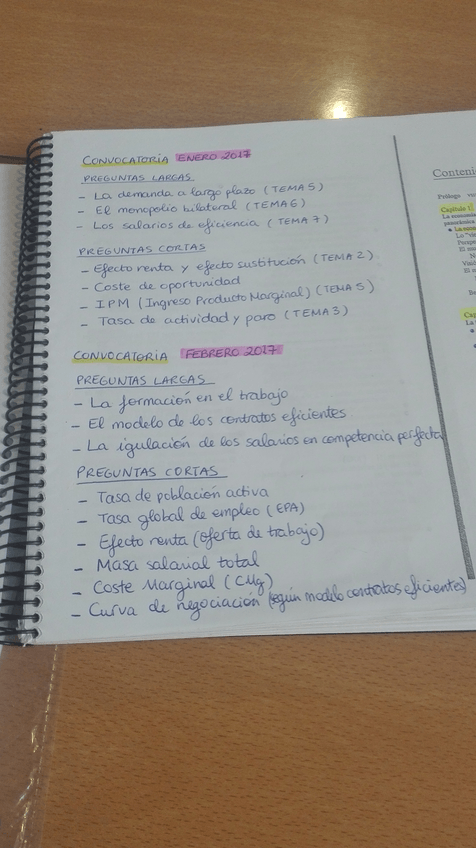 CONVOCATORIA ENERO 2017
PREGUNTAS LARGAS
- La demanda a largo plazo (TEMA 5)
- El monopolio bilateral (TEMA 6)
- Los salarios de eficiencia (TEMA 7)
PREGUNTAS CORTAS
- Efecto renta y efecto sustitución (TEMA 2)
- Coste de oportunidad
- IPM (Ingreso Producto Marginal) (TEMA 5)
- Tasa de actividad y paro (TEMA 3)
CONVOCATORIA FEBRERO 2017
PREGUNTAS LARGAS
- La formación en el trabajo
- El modelo de los contratos eficientes
- La igulación de los salarios en competencia perfecta
PREGUNTAS CORTAS
- Tasa de población activa
- Tasa global de empleo (EPA)
- Efecto renta (oferta de trabajo)
- Masa salarial total
- Coste Marginal (CMg)
- Curva de negociación (según modelo contratos eficientes)
Conteni
Prólogo
Capítulo 1